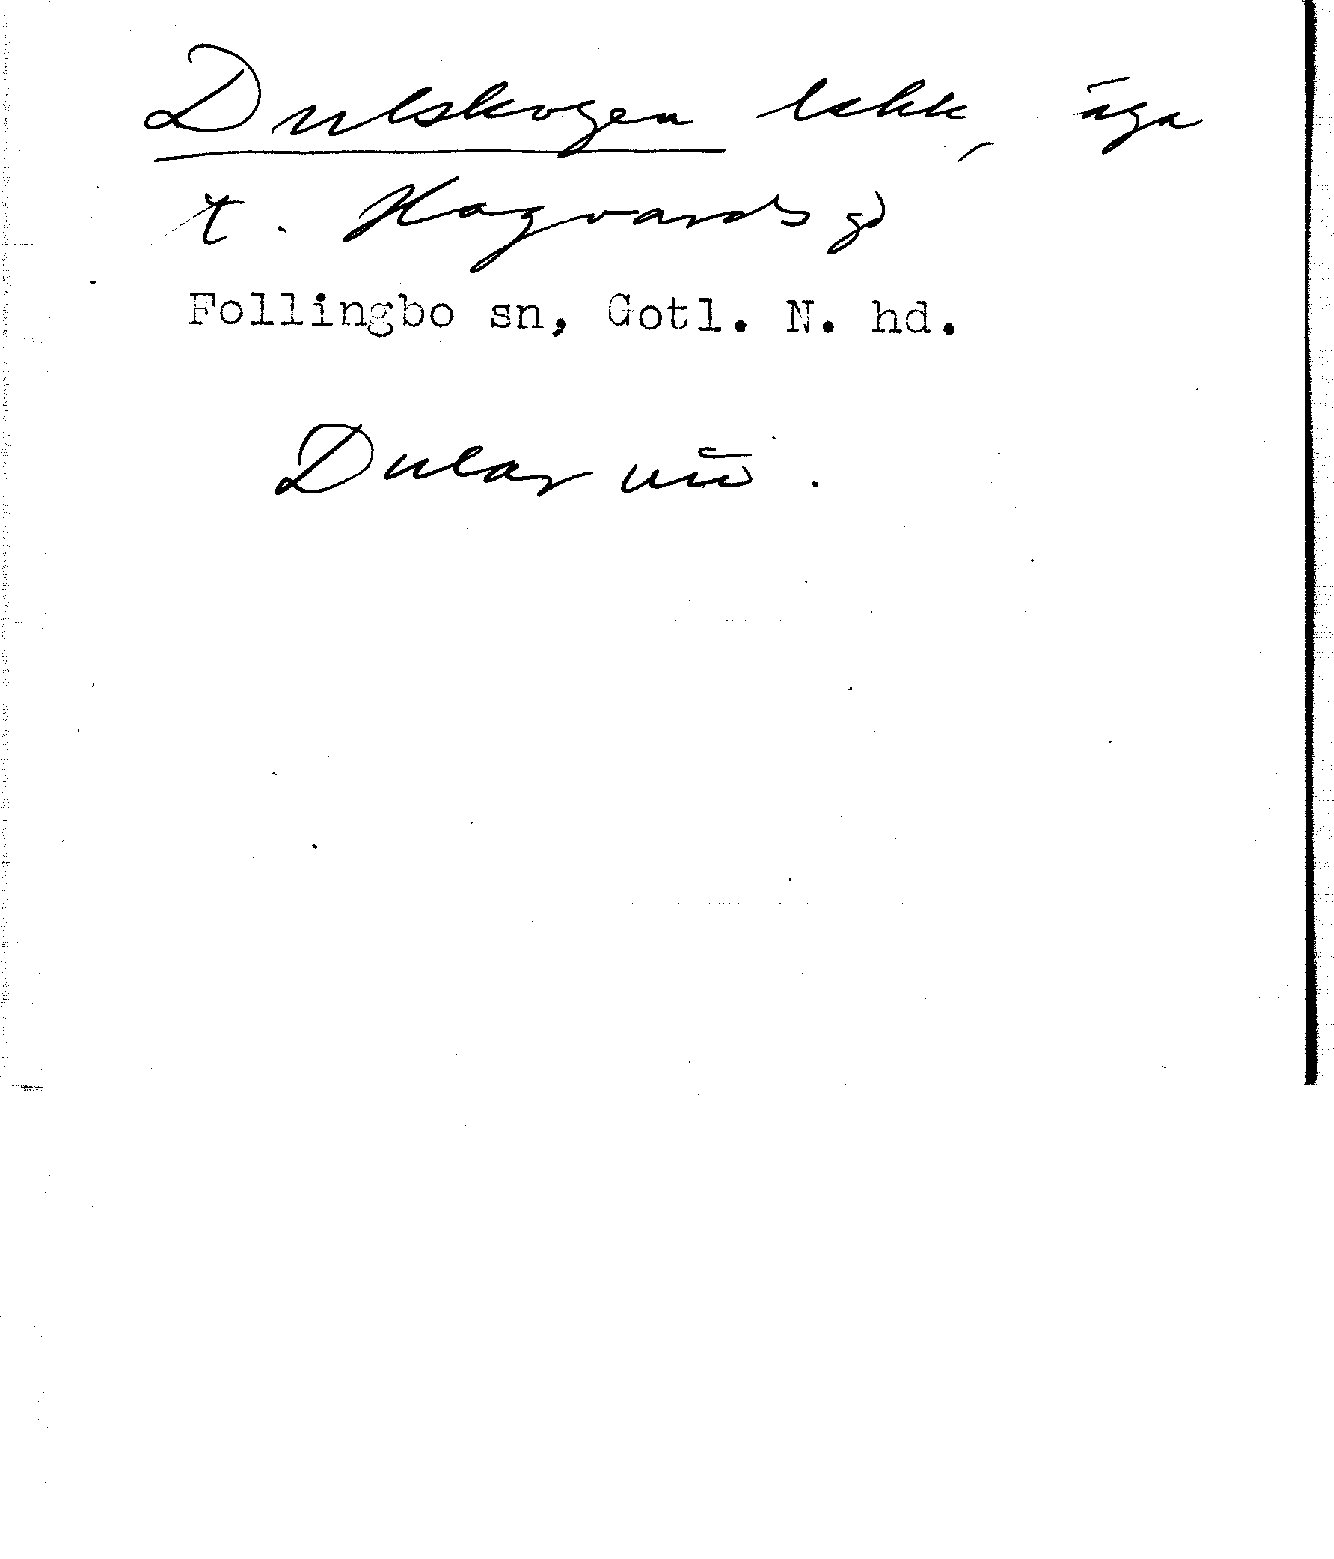 Dulskogen lekk, äga
t. Hagvards gd
Follingbo sn, Gotl. N. hd.
Dular